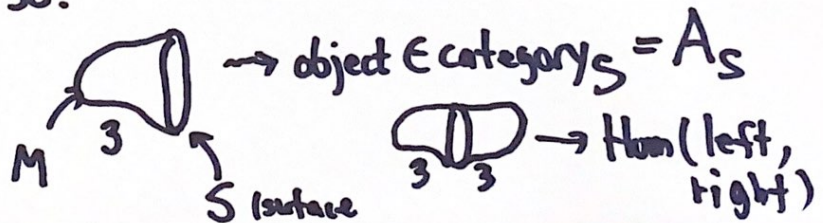 ⇝ object ∈ category_S = A_S
M 3 S (surface
3 3 → Hom(left,
right)